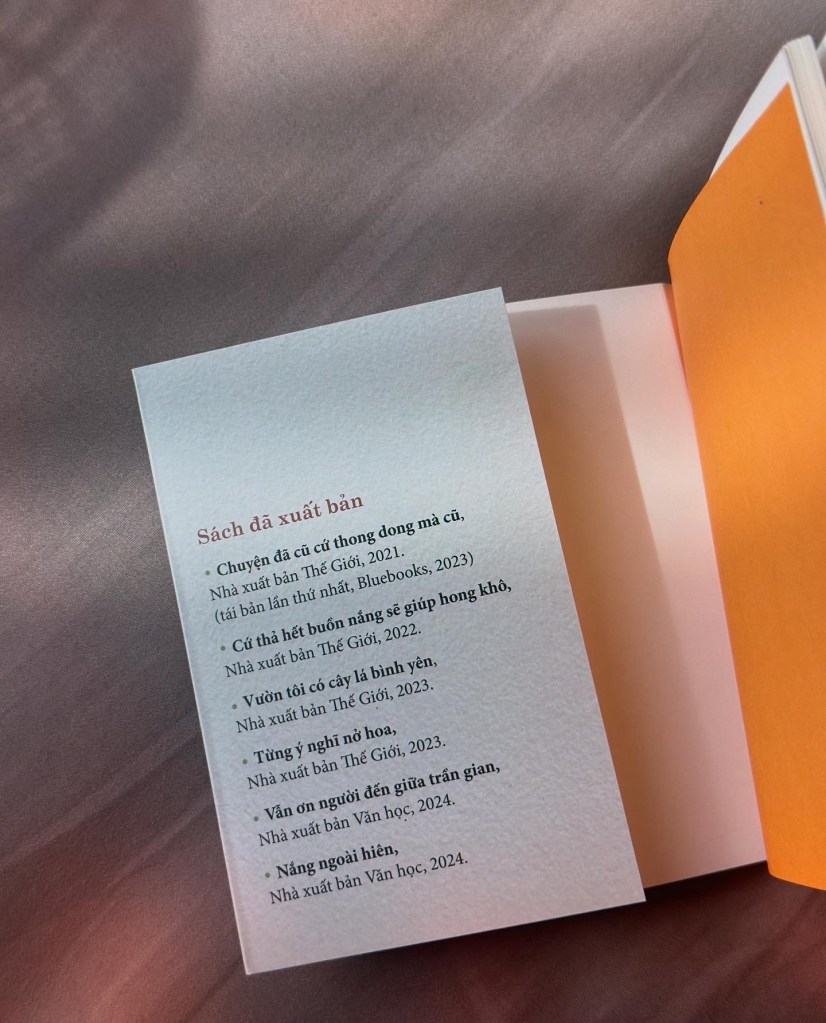 Sách đã xuất bản
• Chuyện đã cũ cứ thong dong mà cũ,
Nhà xuất bản Thế Giới, 2021.
(tái bản lần thứ nhất, Bluebooks, 2023)
• Cứ thả hết buồn nắng sẽ giúp hong khô,
Nhà xuất bản Thế Giới, 2022.
• Vườn tôi có cây lá bình yên,
Nhà xuất bản Thế Giới, 2023.
• Từng ý nghĩ nở hoa,
Nhà xuất bản Thế Giới, 2023.
• Vẫn ơn người đến giữa trần gian,
Nhà xuất bản Văn học, 2024.
• Nắng ngoài hiên,
Nhà xuất bản Văn học, 2024.